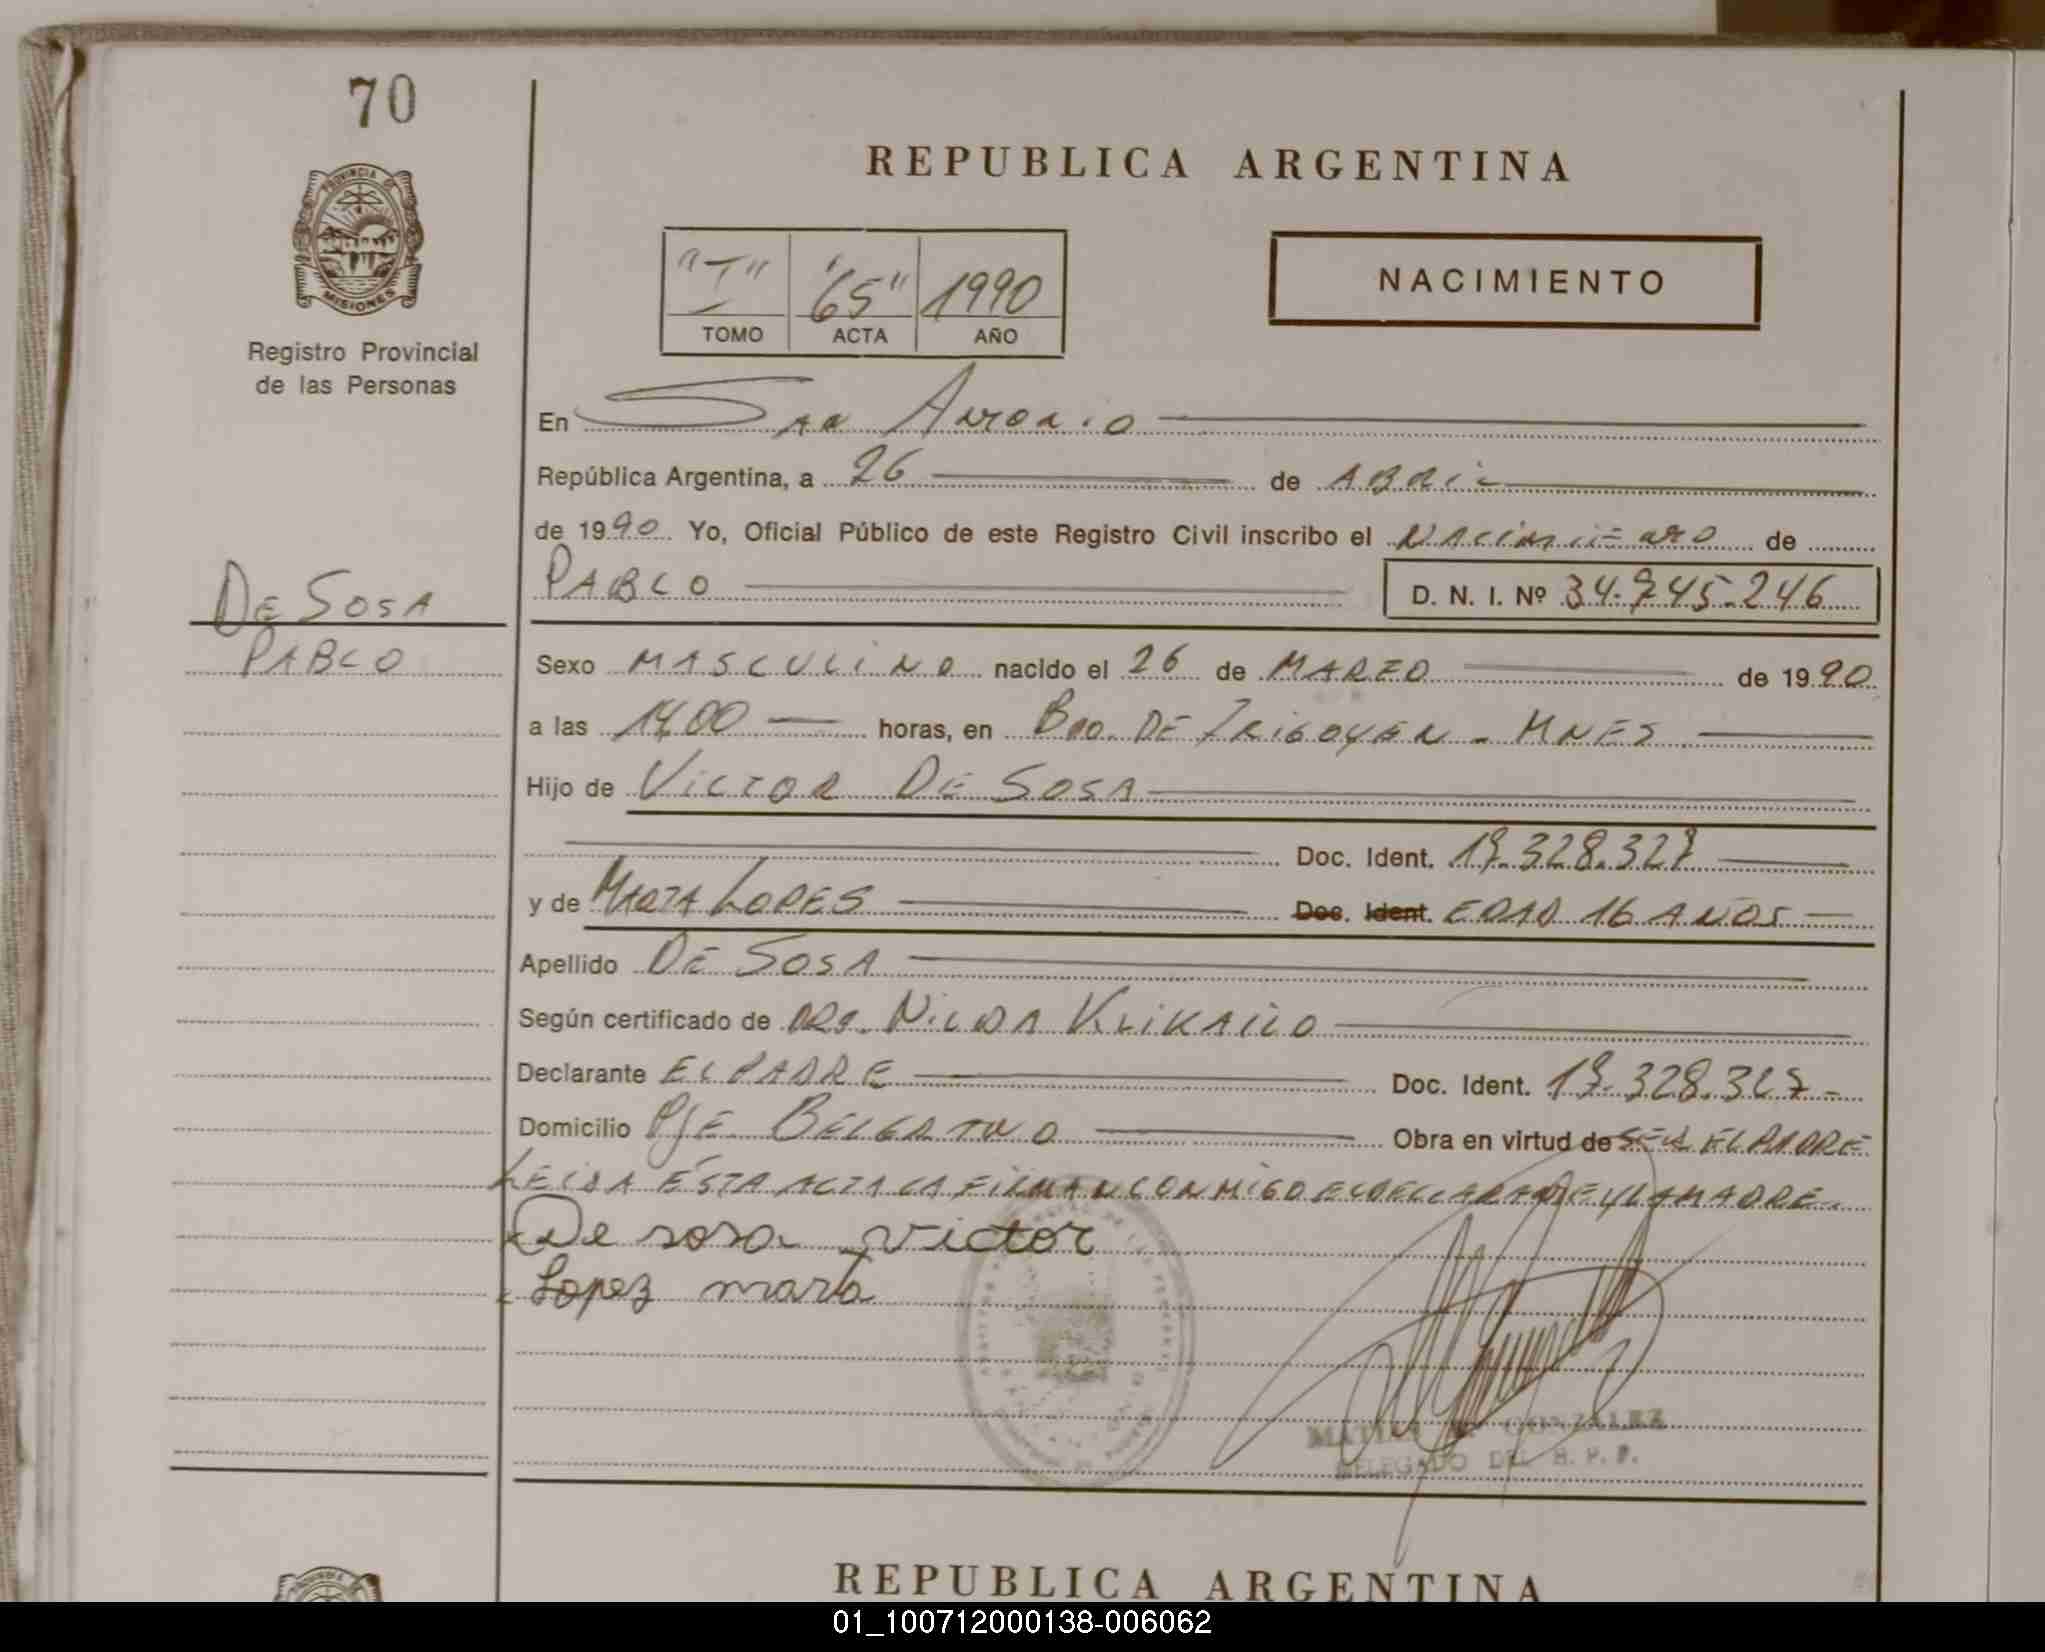 70
PROVINCIA DE
MISIONES
Registro Provincial
de las Personas
DE SOSA
PABLO
REPUBLICA ARGENTINA
"I" "65" 1990
TOMO ACTA AÑO
NACIMIENTO
En San Antonio
República Argentina, a 26 de ABRIL
de 1990 Yo, Oficial Público de este Registro Civil inscribo el NACIMIENTO de
PABLO D. N. I. Nº 34.945.246
Sexo MASCULINO nacido el 26 de MARZO de 1990
a las 14,00 horas, en Bdo. DE IRIGOYEN - MNES
Hijo de VICTOR DE SOSA
Doc. Ident. 17.328.327
y de MARTA LOPES Doc. Ident. EDAD 16 AÑOS
Apellido DE SOSA
Según certificado de DRA. NILDA
Declarante EL PADRE Doc. Ident. 17.328.327-
Domicilio PJE BELGRANO Obra en virtud de SER EL PADRE
LEIDA ESTA ACTA LA FIRMAN CONMIGO EL DECLARANTE Y LA MADRE.
x De sosa victor
x Lopez marta
GONZALEZ
DELEGADO DEL R. P. P.
REPUBLICA ARGENTINA
01_100712000138-006062